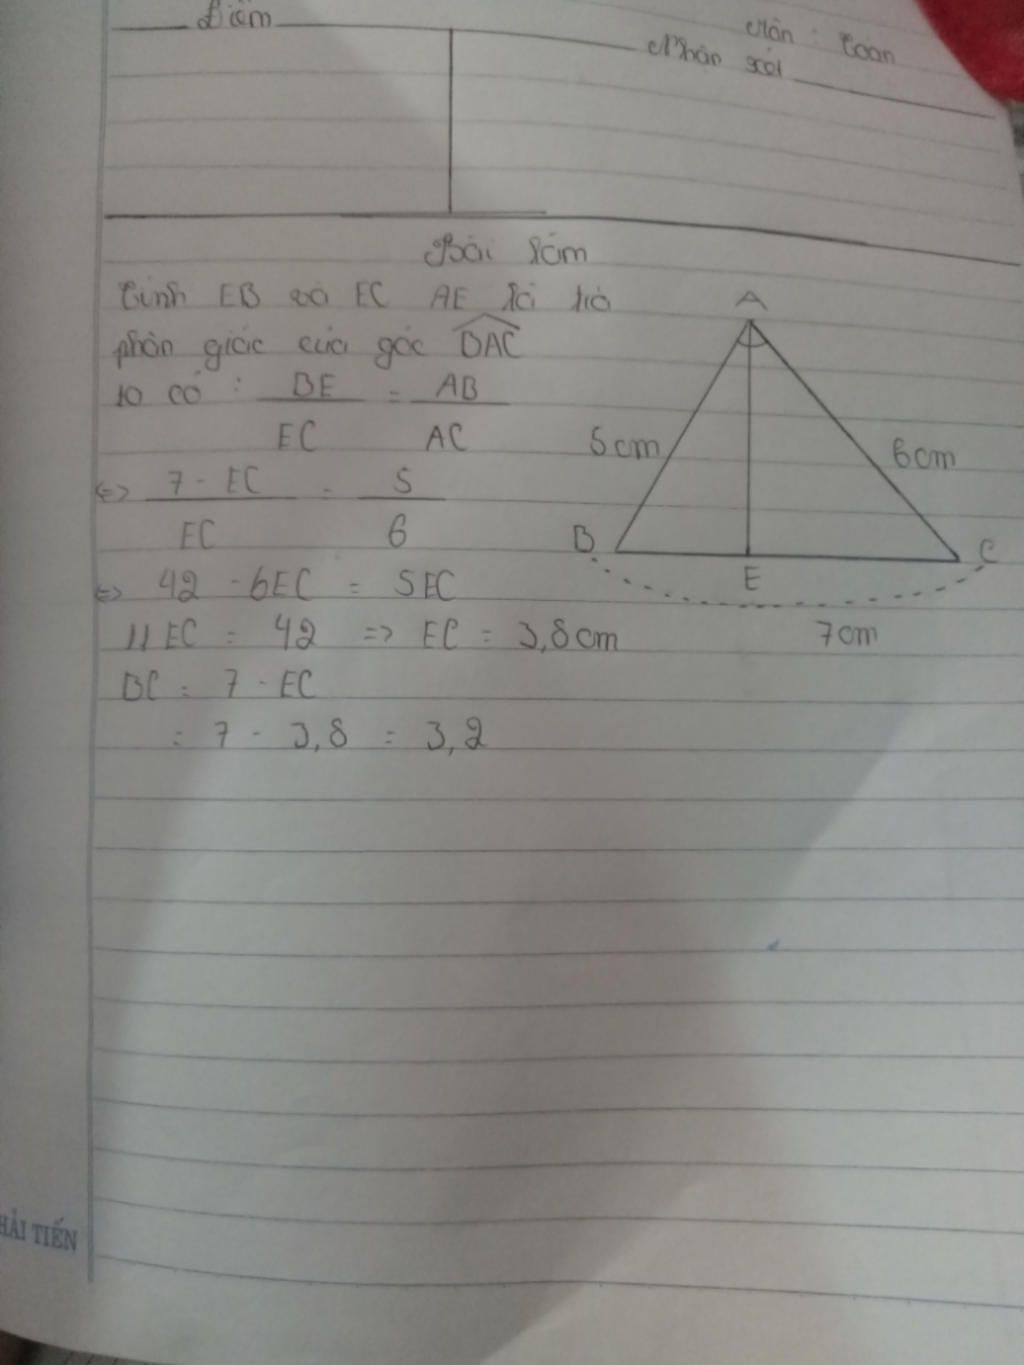 Điểm
Môn : Toán
Nhận xét
Bài làm
Tính EB và EC AE là tia
phân giác của góc BAC
ta có : BE/EC = AB/AC
<=> 7 - EC/EC = 5/6
<=> 42 - 6EC = 5EC
11EC = 42 => EC = 3,8cm
BC = 7 - EC
= 7 - 3,8 = 3,2
A
5cm
6cm
B
E
C
7cm
HẢI TIẾN